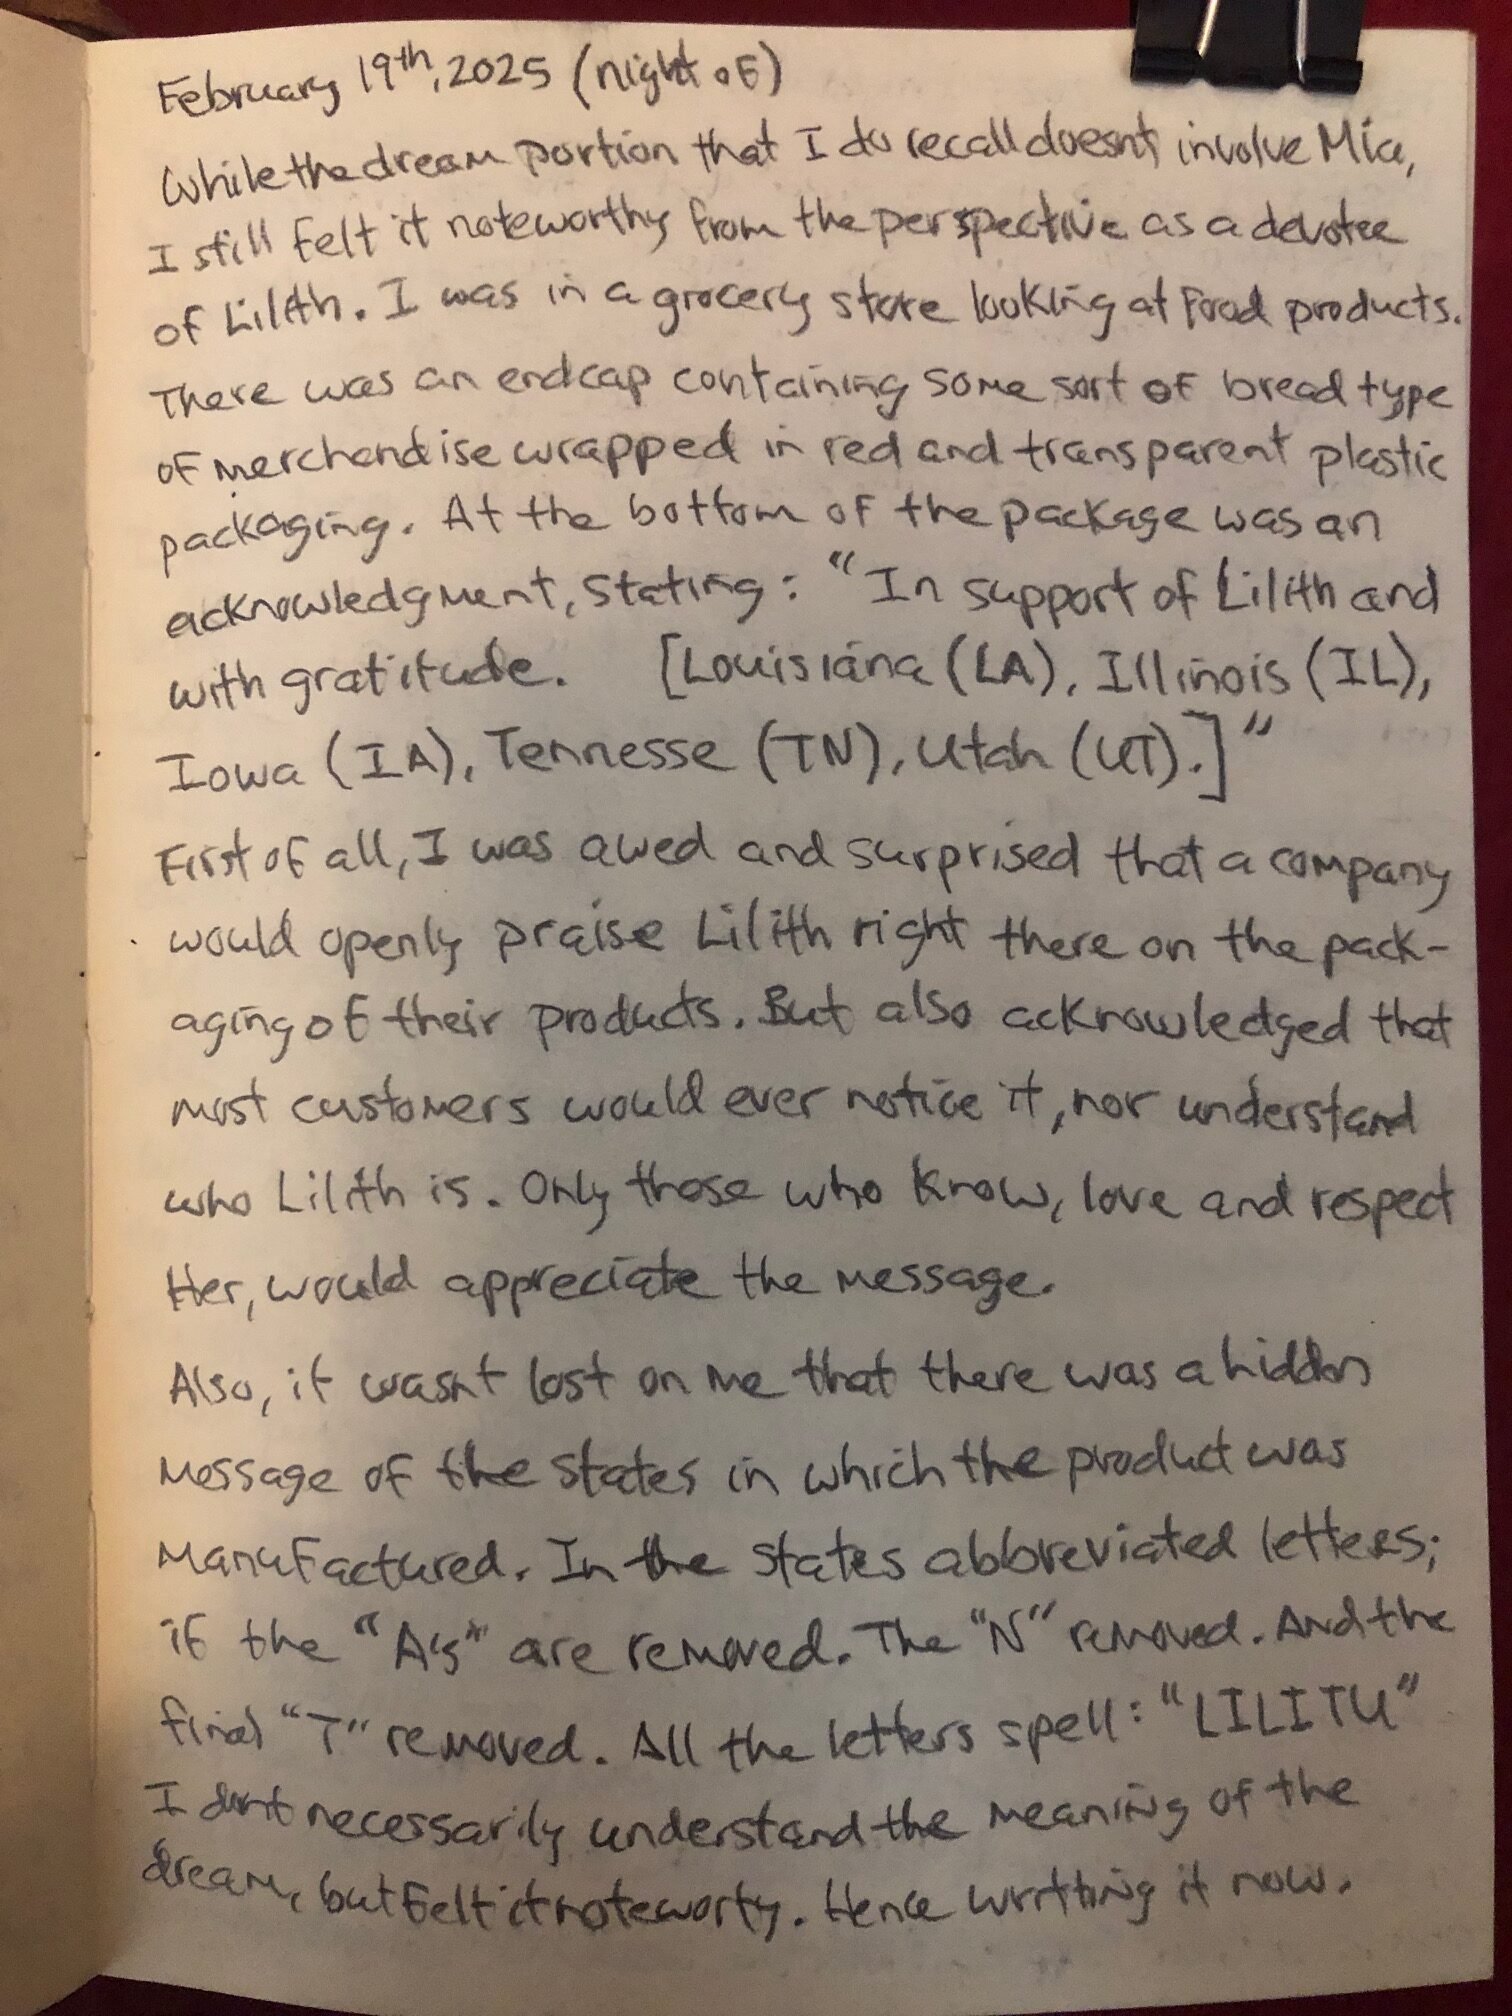 February 19th, 2025 (night of)
While the dream portion that I do recall doesn't involve Mia,
I still felt it noteworthy from the perspective as a devotee
of Lilith. I was in a grocery store looking at food products.
There was an endcap containing some sort of bread type
of merchendise wrapped in red and transparent plastic
packaging. At the bottom of the package was an
acknowledgment, stating: "In support of Lilith and
with gratitude. [Louisiana (LA), Illinois (IL),
Iowa (IA), Tennesse (TN), Utah (UT).]"
First of all, I was awed and surprised that a company
would openly praise Lilith right there on the pack-
aging of their products. But also acknowledged that
most customers would ever notice it, nor understand
who Lilith is. Only those who know, love and respect
Her, would appreciate the message.
Also, it wasn't lost on me that there was a hidden
message of the states in which the product was
manufactured. In the states abbreviated letters;
if the "A's" are removed. The "N" removed. And the
final "T" removed. All the letters spell: "LILITU"
I don't necessarily understand the meaning of the
dream, but felt it noteworty. Hence writting it now.